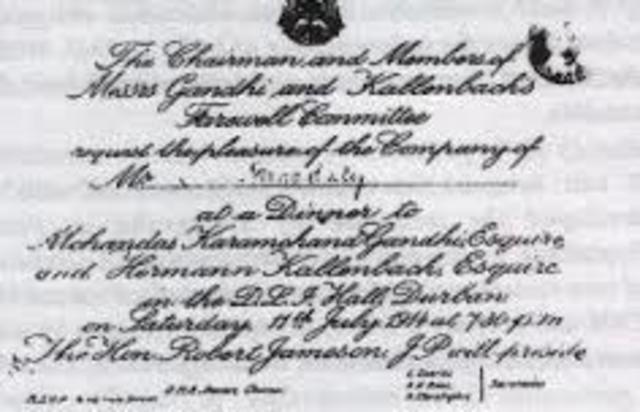 The Chairman and Members of
Messrs Gandhi and Kallenbach's
Farewell Committee
request the pleasure of the Company of
Mr
at a Dinner to
Mohandas Karamchand Gandhi, Esquire
and Hermann Kallenbach, Esquire
in the D.L.I. Hall, Durban
on Saturday, 11th July, 1914 at 7.30 p.m
The Hon. Robert Jameson, J.P. will preside
R.S.V.P